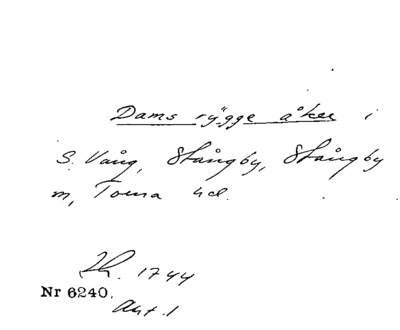 Dams rÿgge åker i
S. Vång, Stångby, Stångby
m, Torna hd.
Lh. 1744
Nr 6240.
Akt. 1